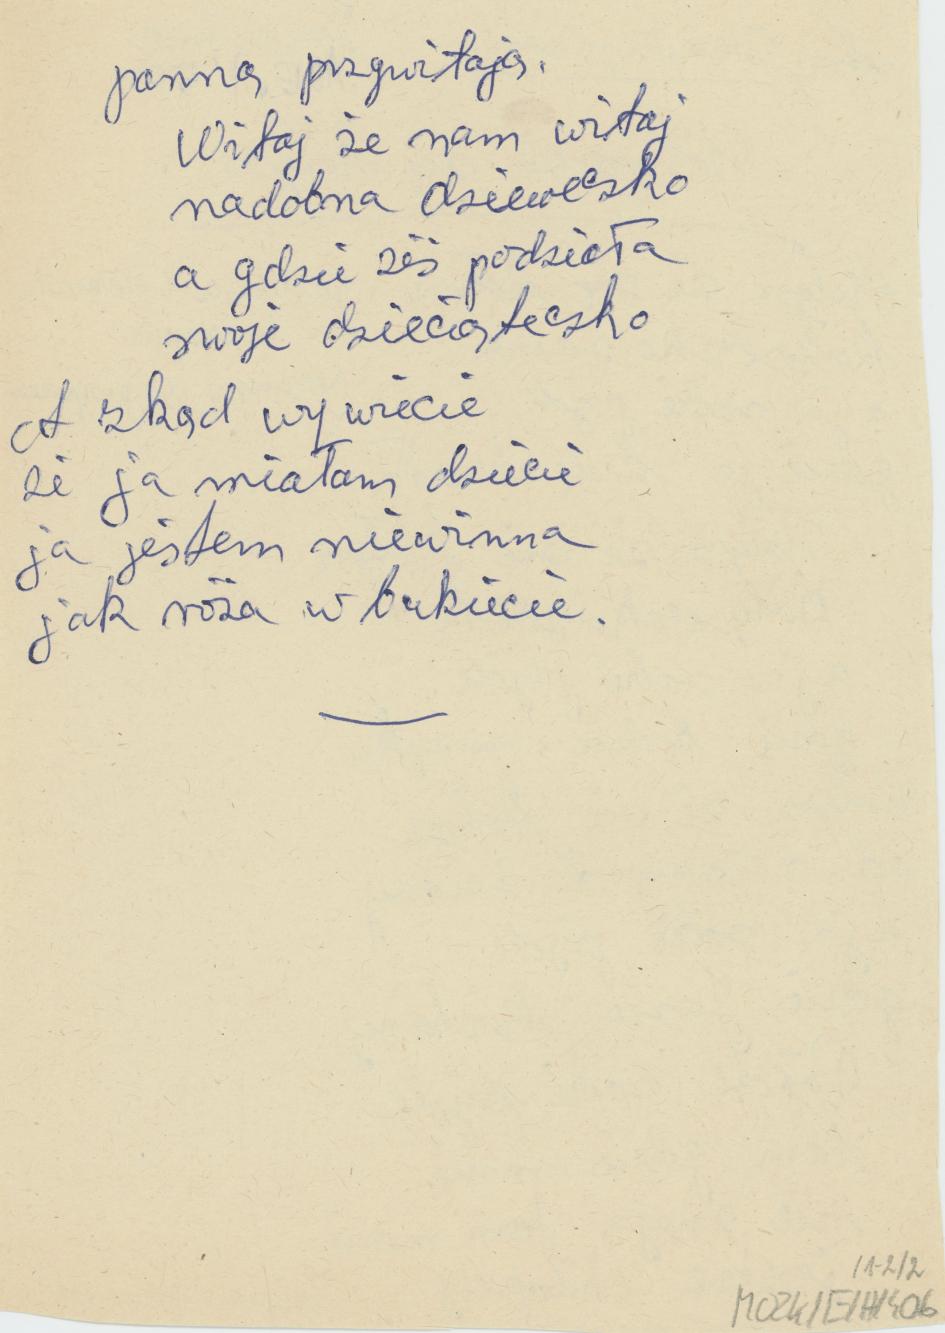 panną przywitają.
Witaj że nam witaj
nadobna dzieweczko
a gdzie żeś podzieła
swoje dzieciąteczko
A zkąd wy wiecie
że ja miałam dziecie
ja jestem niewinna
jak róża w bukiecie.
11-2/2